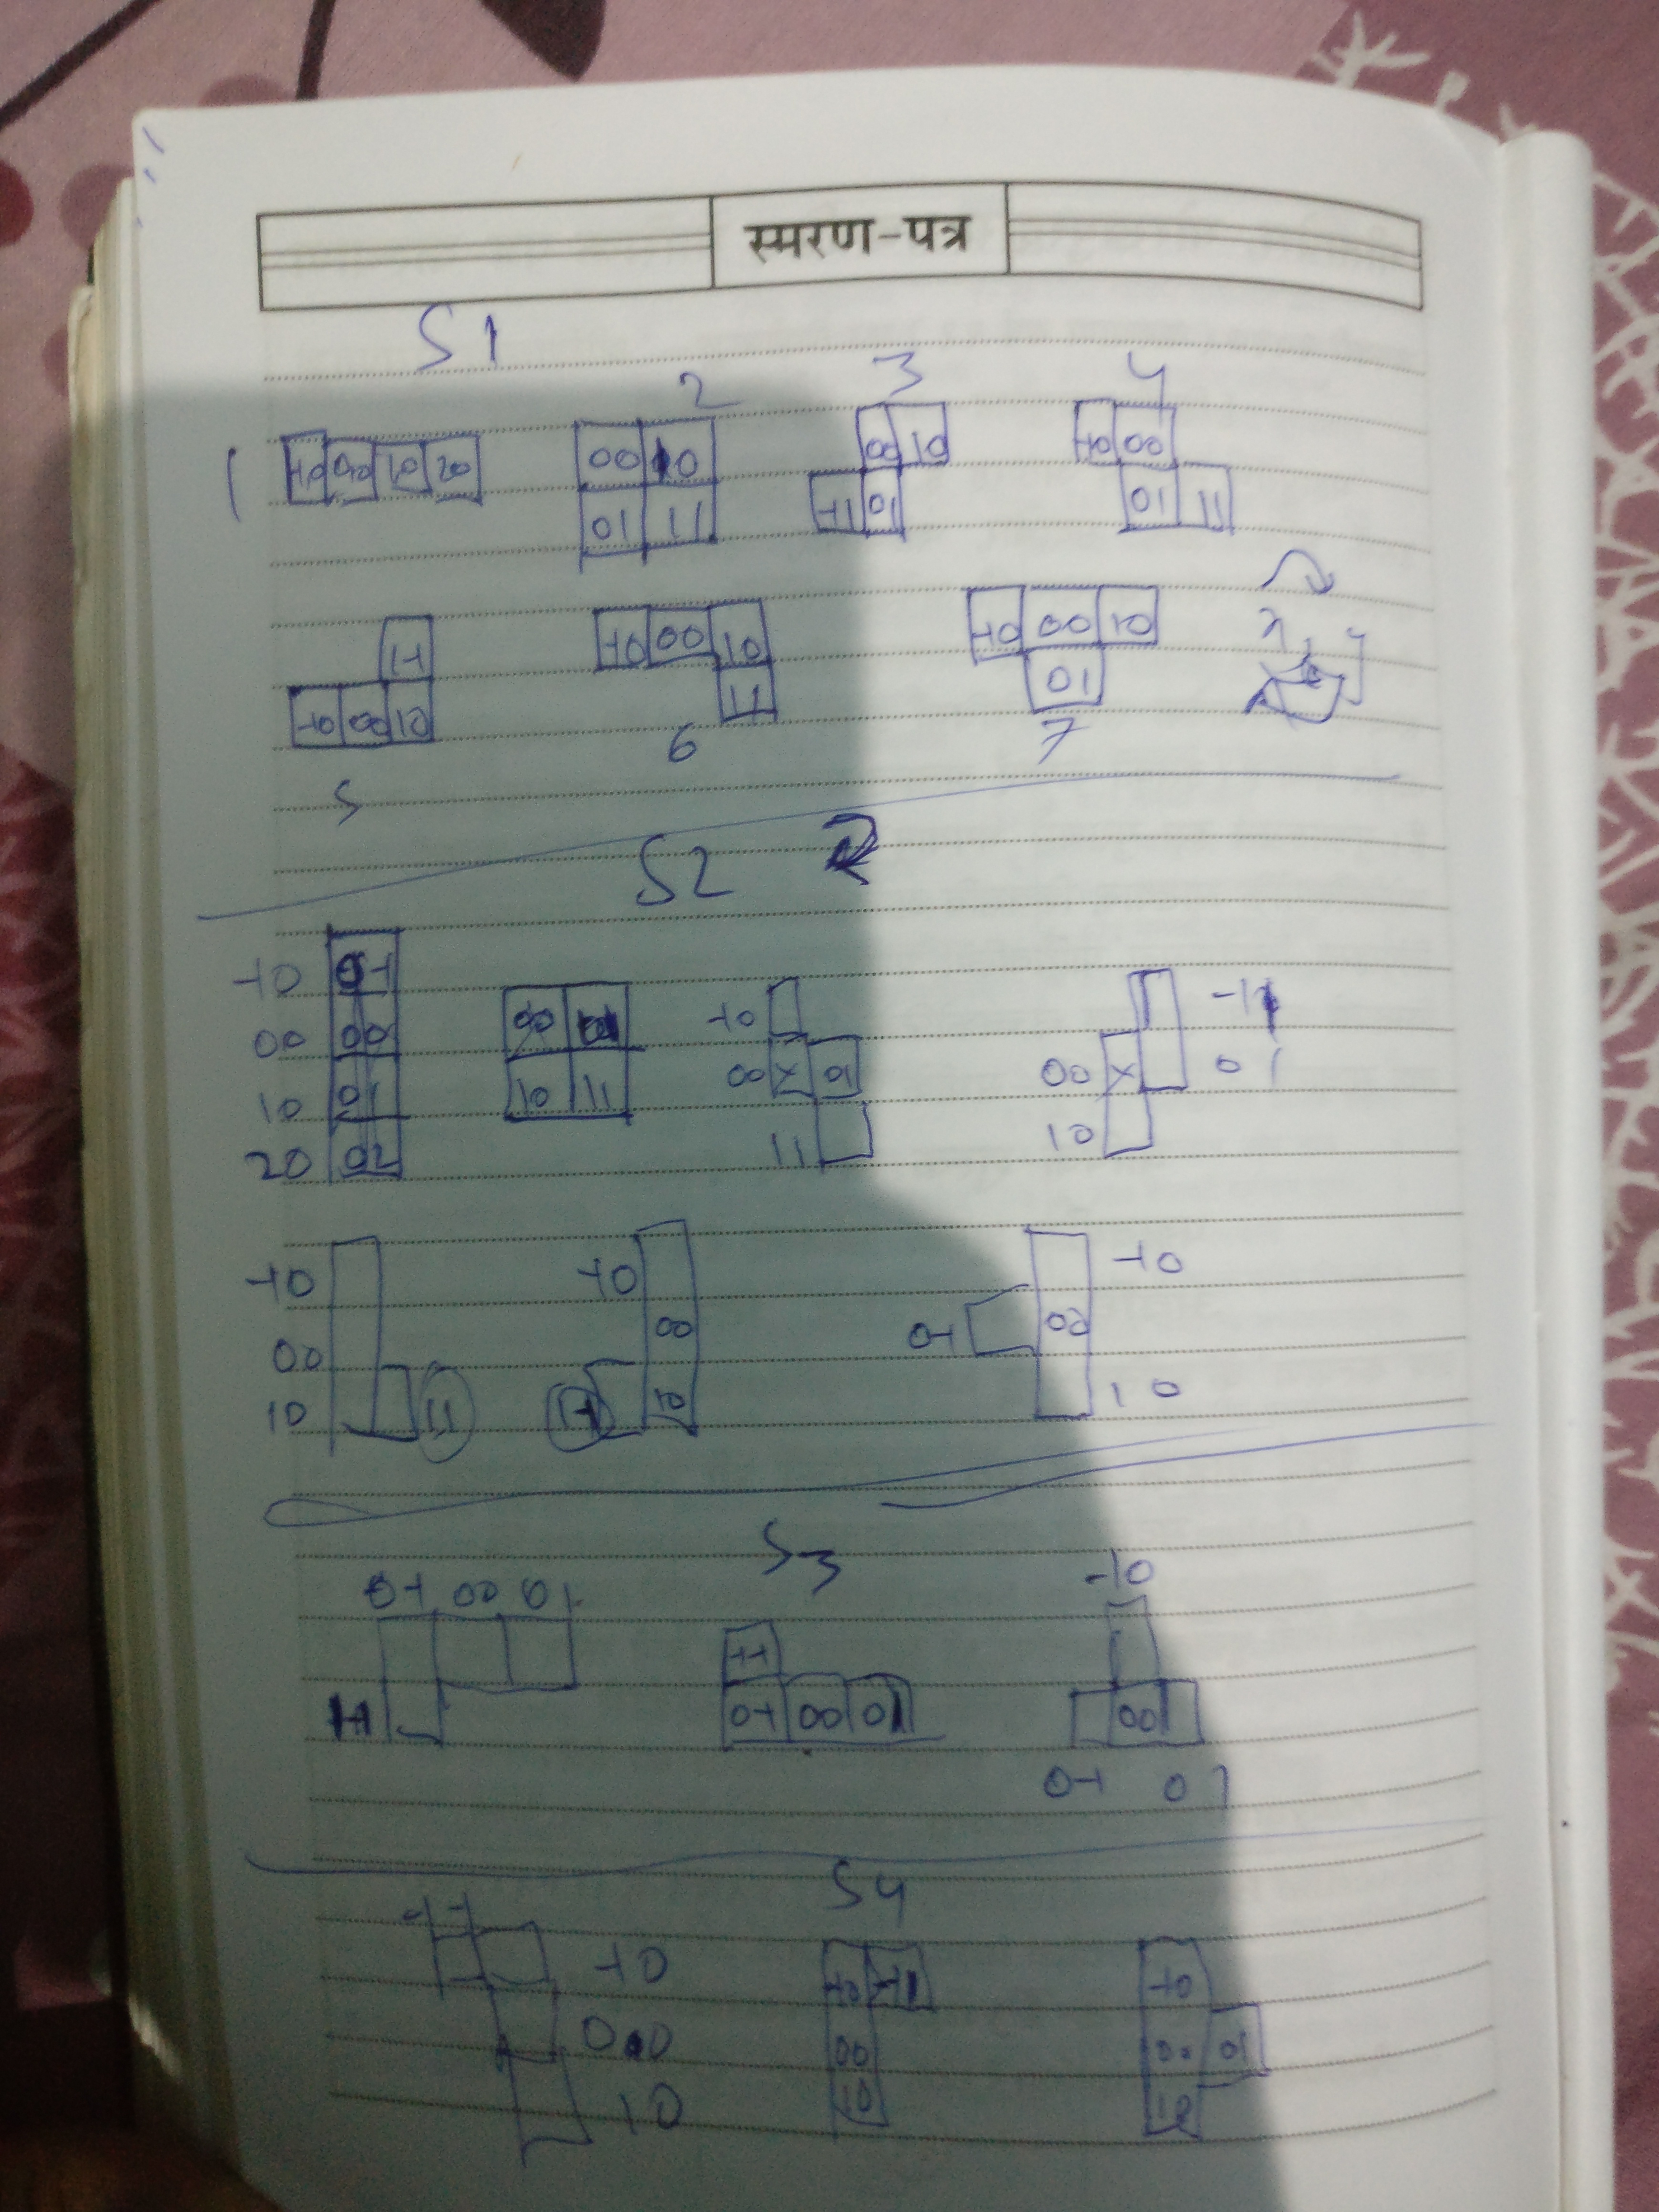 स्मरण-पत्र
S1
2 3 4
1 -10 00 10 20
00 10
01 11
00 10
-11 01
-10 00
01 11
1-1
-10 00 10
5
-10 00 10
11
6
-10 00 10
01
7
S2
-10
00 00
10 01
20 02
00 01
10 11
-10
00 X 01
11
-11
00 X 01
10
-10
00
10 11
-10
00
1-1 10
-10
0-1 00
10
S3
0-1 00 01
1-1
-1-1
0-1 00 01
-10
00
0-1 01
S4
-1-1 -10
00
10
-10 -11
00
10
-10
00 01
10